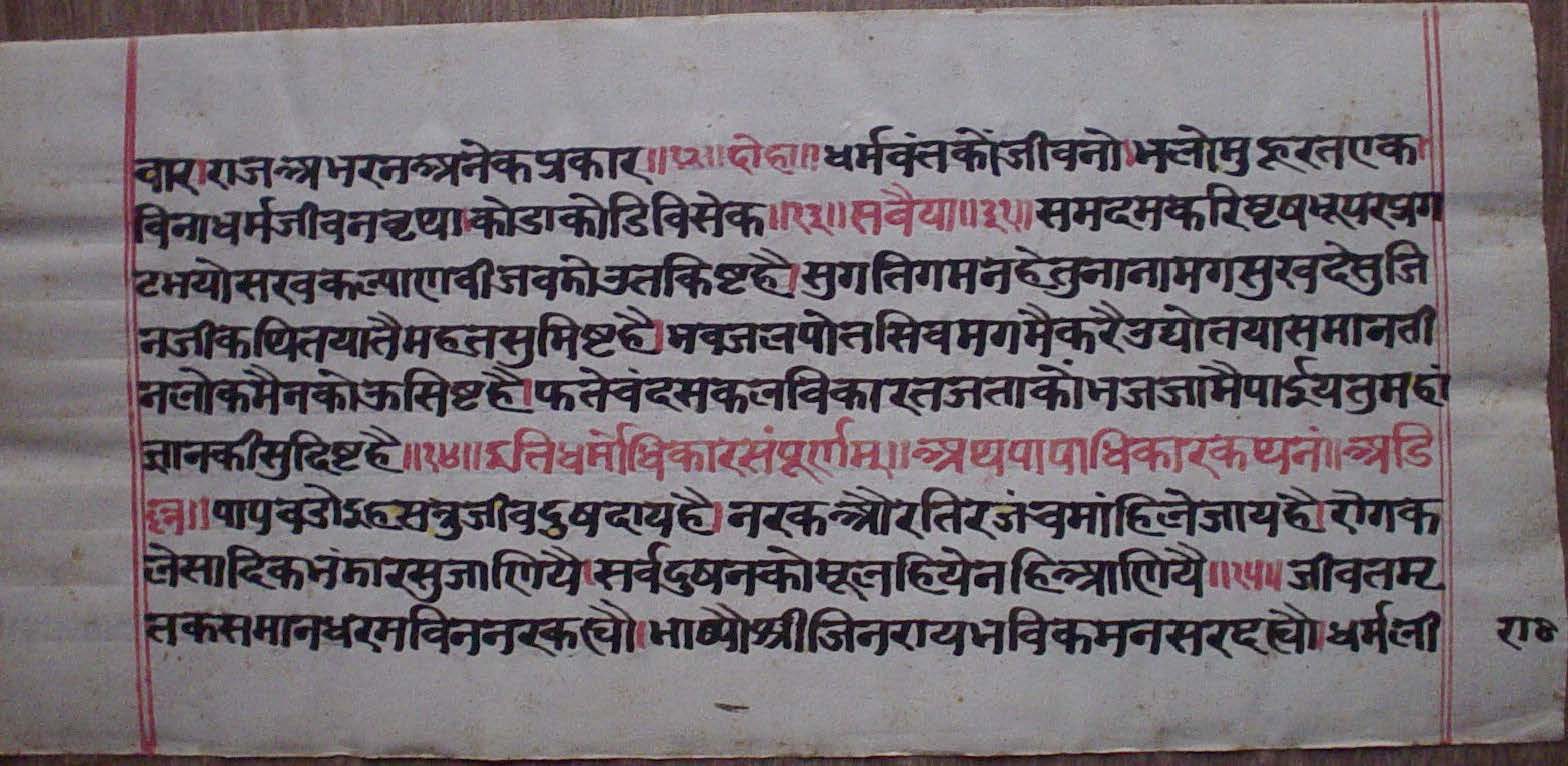 वार।राजअभरनअनेकप्रकार॥१२॥दोहा॥धर्मवंतकौंजीवनो।भलोमुहूरतएक।
विनाधर्मजीवनवृथा।कोडाकोडिविसेक॥१३॥सवैया॥३१॥समदमकरिवृषभूपरप्रग
टभयोसरवकल्याणवीजवकोउतकिष्टहै।सुगतिगमनहेतुनानामगसुखदेसुजि
नजीकथितयातैमहतसुमिष्टहै।भवजलपोतसिवमगमैकरैउद्योतयासमानती
नलोकमैनकोऊसिष्टहै।फतेचंदसकलविकारतजताकोंभजजामैपाईयतुमहां
ज्ञानकीसुदिष्टहै॥१४॥इतिधर्माधिकारसंपूर्णम्॥अथपापाधिकारकथनं॥अडि
ल्ल॥पापवडोइहसत्रुजीवदुषदायहै।नरकऔरतिरजंचमांहिलेजायहै।रोगक
लेसादिकभंडारसुजाणियै।सर्वदुषनकोमूलहियेनहिआणियै॥१५॥जीवतमृ
तकसमानधरमविननरकत्यौ।भाष्यौश्रीजिनरायभविकमनसरदत्यौ।धर्मली
रा०४